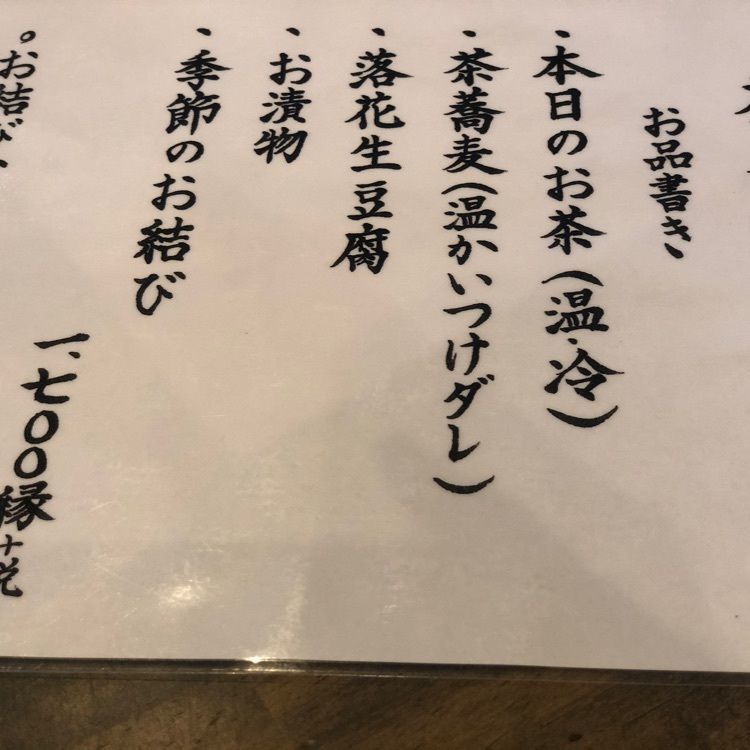 お品書き、
・本日のお茶(温・冷)
・茶蕎麦(温かいつけダレ)
・落花生豆腐
・お漬物
・季節のお結び
一、七〇〇縁+税
。お結び、